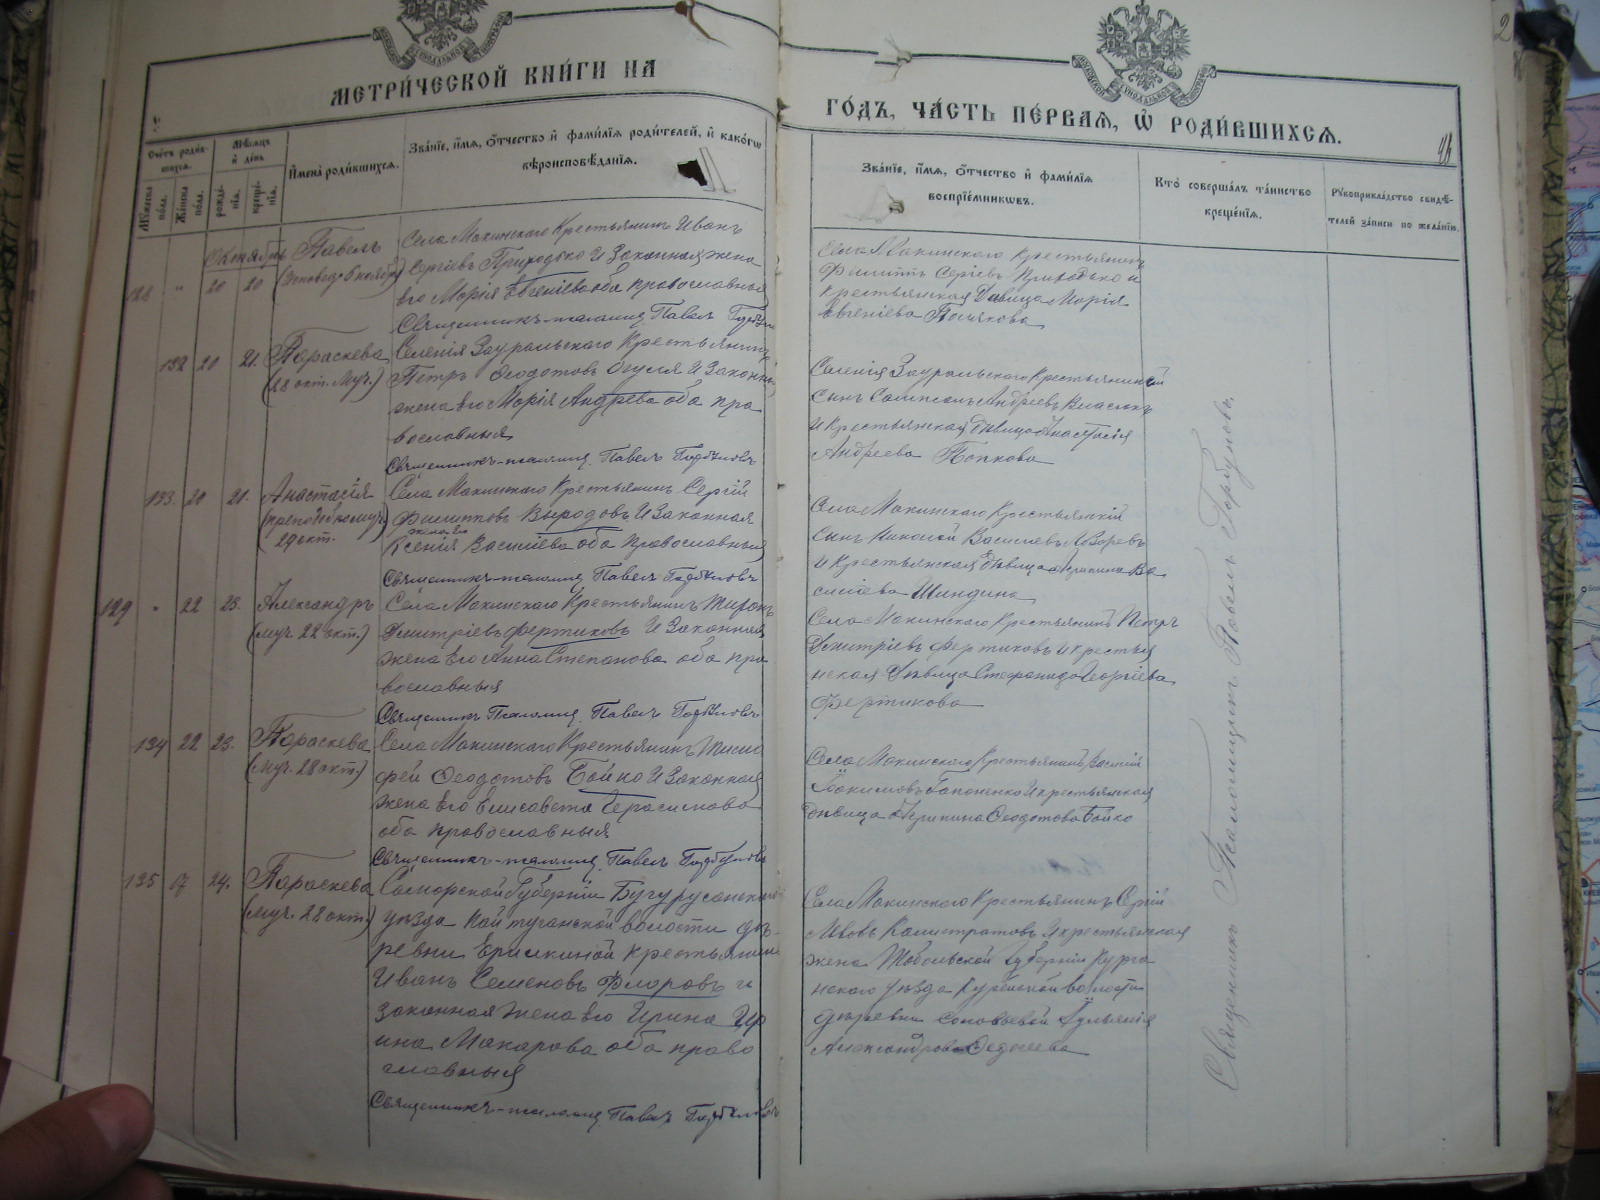 МЕТРИ́ЧЕСКОЙ КНИ́ГИ НА
ГО́ДЪ, ЧА́СТЬ ПЕ́РВАѦ, Ѡ҆ РОДИ́ВШИХСѦ.
46
2
Сче́тъ роди́в-
шихсѧ.
Мѣ́сѧцъ
и҆ де́нь
Мꙋ́жеска
по́ла.
Же́нска
по́ла.
рожде́-
нїѧ.
креще́-
нїѧ.
И҆мена̀ роди́вшихсѧ.
Зва́нїе, и҆́мѧ, ѻ҆́тчество и҆ фами́лїѧ роди́телей, и҆ како́гѡ
вѣроисповѣ́данїѧ.
Зва́нїе, и҆́мѧ, ѻ҆́тчество и҆ фами́лїѧ
воспрїе́мникѡвъ.
Кто̀ соверша́лъ та́инство
креще́нїѧ.
Рꙋкоприкла́дство свидѣ́-
телей за́писи по жела́нїю.
Октябрь
128 " 20 20
Павелъ
(Исповед. 6 ноября)
Села Макинскаго Крестьянинъ Иванъ
Сергіевъ Природько И Законная жена
его Марія Евгеніева оба православныя
Священникъ-псаломщ. Павелъ
Села Макинскаго Крестьянинъ
Филиппъ Сергіевъ Природько и
крестьянская Дѣвица Марія
Евгеніева Полякова
132 20 21.
Параскева
(28 окт. Муч.)
Селенія Зауральскаго Крестьянинъ
Петръ Ѳеодотовъ И Законная
жена его Марія Андрѣева оба пра
вославныя
Священникъ-псаломщ. Павелъ Горбуновъ
Селенія Зауральскаго Крестьянинскій
сынъ Андреевъ
И Крестьянская дѣвица Анастасія
Андреева Попкова
133. 20 21.
Анастасія
(преподобномуч.
29 окт.
Села Макинскаго Крестьянинъ Сергій
Филипповъ Выродовъ И Законная
жена его
Ксенія Василіева оба православныя
Священникъ-псаломщ. Павелъ Горбуновъ
Села Макинскаго Крестьянскій
сынъ Николай Василіевъ
И Крестьянская дѣвица Агрипина Ва
силіева Шиндина
129 " 22 23.
Александръ
(муч. 22 окт.)
Села Макинскаго Крестьянинъ Миронъ
Дмитріевъ Фертиковъ И Законная
жена его Анна Степанова оба пра
вославныя
Священникъ Псаломщ. Павелъ Горбуновъ
Села Макинскаго Крестьянинъ Петръ
Дмитріевъ Фертиковъ и крестья
нская дѣвица Стефанида Георгіева
Фертикова
134 22 23.
Параскева
(муч. 28 окт.)
Села Макинскаго Крестьянинъ Тимо
фей Ѳеодотовъ Бойко И Законная
жена его Елисавета Герасимова
оба православныя
Священникъ-псаломщ. Павелъ Горбуновъ
Села Макинскаго Крестьянинъ Василій
Іоакимовъ Гапоненко И крестьянская
дѣвица Агрипина Ѳеодотова Бойко
135 17 24.
Параскева
(муч. 28 окт.)
Самарской Губерніи Бугурусланскаго
уѣзда волости де-
ревни крестьянинъ
Иванъ Семеновъ Флоровъ и
законная жена его Ирина Ир
ина Макарова оба право
славныя
Священникъ-псаломщ. Павелъ Горбуновъ
Села Макинскаго Крестьянинъ Сергій
Львовъ Калистратовъ И крестьянская
жена Тобольской Губерніи Курга
нскаго уѣзда волости
деревни Соловьевой Іульянія
Александрова Ѳедосеева
Священникъ Псаломщикъ Павелъ Горбуновъ.